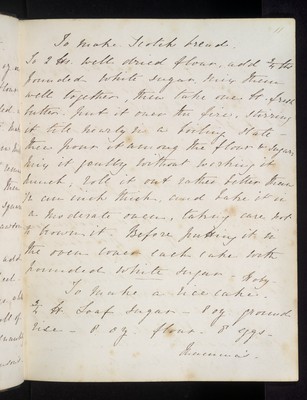 11
To make Scotch bread.
To 2 lbs well dried flour, add ¾ lb
pounded white sugar, mix them
well together, then take one lb fresh
butter. Put it over the fire, stirring
it till nearly in a boiling state
then pour it among the flour & sugar,
mix it gently without working it
much, roll it out rather better than
½ an inch thick, and bake it in
a moderate oven, taking care not
to brown it. Before putting it in
the oven cover each cake with
pounded white sugar
To make a rice cake.
¾ lb Loaf sugar — 8 oz ground
rice — 8 oz flour. 8 eggs.